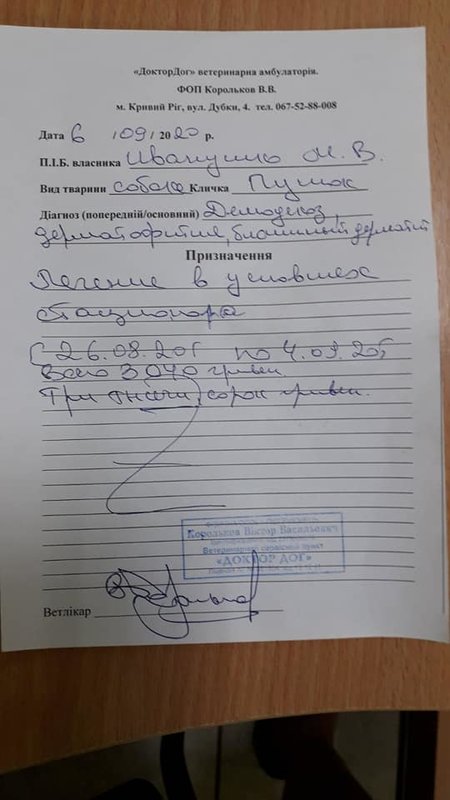 «ДокторДог» ветеринарна амбулаторія.
ФОП Корольков В.В.
м. Кривий Ріг, вул. Дубки, 4. тел. 067-52-88-008
Дата 6 /09/ 2020 р.
П.І.Б. власника М. В.
Вид тварини собака Кличка Пушок
Діагноз (попередній/основний) Демодекоз,
дерматофития, блошиный дерматит
Призначення
Лечение в условиях
стационара
С 26.08.20г по 4.09.20г
Всего 3040 гривен
Три тысячи сорок гривен.
Корольков Віктор Васильович
Ветеринарний сервісний пункт
«ДОКТОР ДОГ»
Ветлікар